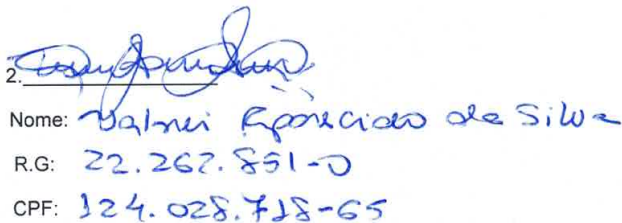 2.
Nome: Valmei Aparecido da Silva
R.G: 22.262.851-0
CPF: 124.028.718-65